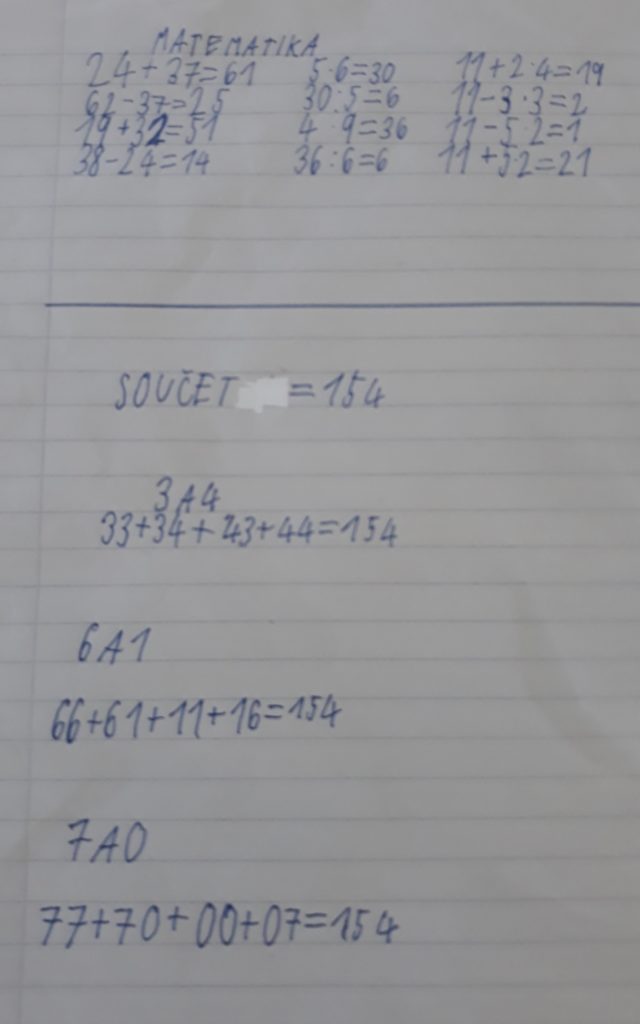 MATEMATIKA
24+37=61 5·6=30 11+2·4=19
62-37=25 30:5=6 11-3·3=2
19+32=51 4·9=36 11-5·2=1
38-24=14 36:6=6 11+5·2=21
SOUČET =154
3A4
33+34+43+44=154
6A1
66+61+11+16=154
7A0
77+70+00+07=154